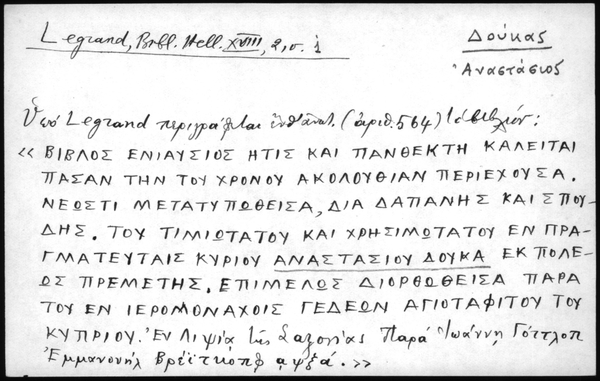 Legrand, Bibl. Hell. XVIII, 2, σ. 1
Δούκας
Ἀναστάσιος
Ὑπό Legrand περιγράφεται (ἀριθ. 564) τό βιβλίον:
« ΒΙΒΛΟΣ ΕΝΙΑΥΣΙΟΣ ΗΤΙΣ ΚΑΙ ΠΑΝΘΕΚΤΗ ΚΑΛΕΙΤΑΙ
ΠΑΣΑΝ ΤΗΝ ΤΟΥ ΧΡΟΝΟΥ ΑΚΟΛΟΥΘΙΑΝ ΠΕΡΙΕΧΟΥΣΑ.
ΝΕΩΣΤΙ ΜΕΤΑΤΥΠΩΘΕΙΣΑ, ΔΙΑ ΔΑΠΑΝΗΣ ΚΑΙ ΣΠΟΥ-
ΔΗΣ. ΤΟΥ ΤΙΜΙΩΤΑΤΟΥ ΚΑΙ ΧΡΗΣΙΜΩΤΑΤΟΥ ΕΝ ΠΡΑ-
ΓΜΑΤΕΥΤΑΙΣ ΚΥΡΙΟΥ ΑΝΑΣΤΑΣΙΟΥ ΔΟΥΚΑ ΕΚ ΠΟΛΕ-
ΩΣ ΠΡΕΜΕΤΗΣ. ΕΠΙΜΕΛΩΣ ΔΙΟΡΘΩΘΕΙΣΑ ΠΑΡΑ
ΤΟΥ ΕΝ ΙΕΡΟΜΟΝΑΧΟΙΣ ΓΕΔΕΩΝ ΑΓΙΟΤΑΦΙΤΟΥ ΤΟΥ
ΚΥΠΡΙΟΥ. Ἐν Λιψίᾳ τῆς Σαξονίας Παρά Ἰωάννῃ Γόττλοπ
Ἐμμανουήλ Βρέϊτκόπφ αψξά. »